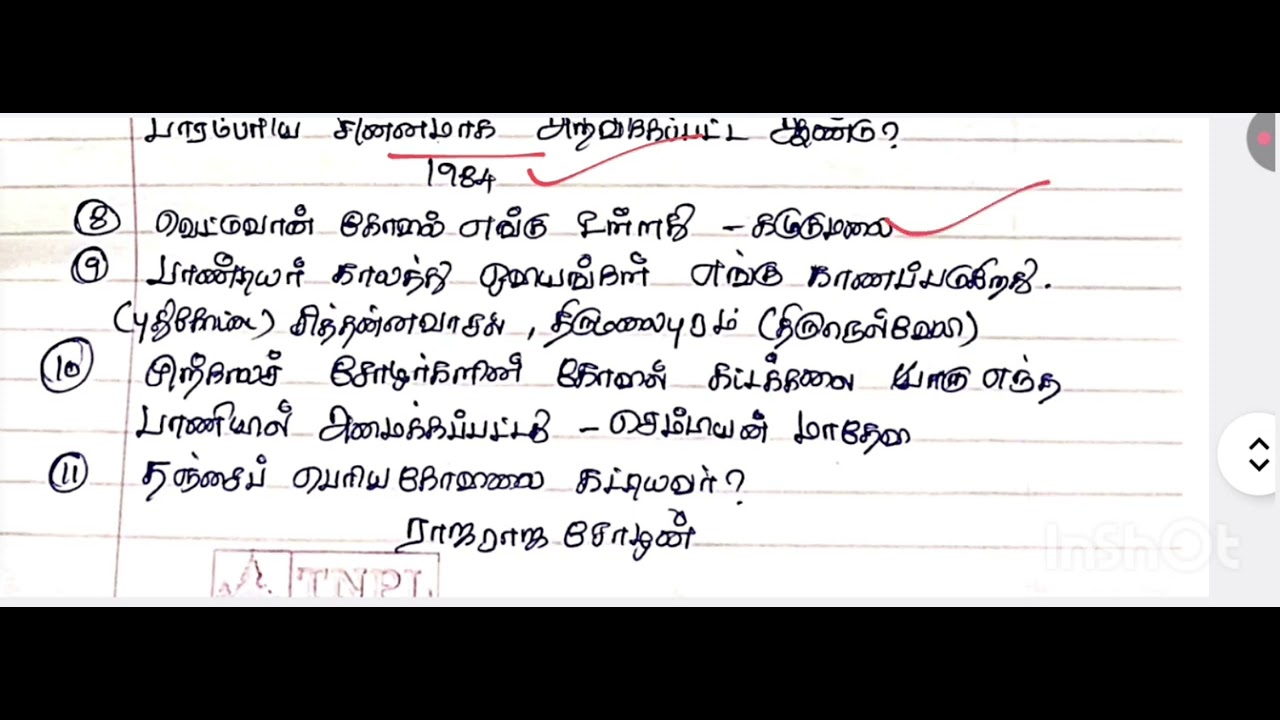 பாரம்பரிய சின்னமாக அறிவிக்கப்பட்ட ஆண்டு?
1984
⑧ வெட்டுவான் கோவில் எங்கு உள்ளது – கழுகுமலை
⑨ பாண்டியர் காலத்து ஓவியங்கள் எங்கு காணப்படுகிறது.
(புதுகோட்டை) சித்தன்னவாசல், திருமலைபுரம் (திருநெல்வேலி)
⑩ பிற்காலச் சோழர்களின் கோவில் கட்டக்கலை எந்த
பாணியால் அமைக்கப்பட்டது – செம்பியன் மாதேவி
⑪ தஞ்சைப் பெரிய கோவிலை கட்டியவர்?
ராஜராஜ சோழன்
TNPL
InShOt